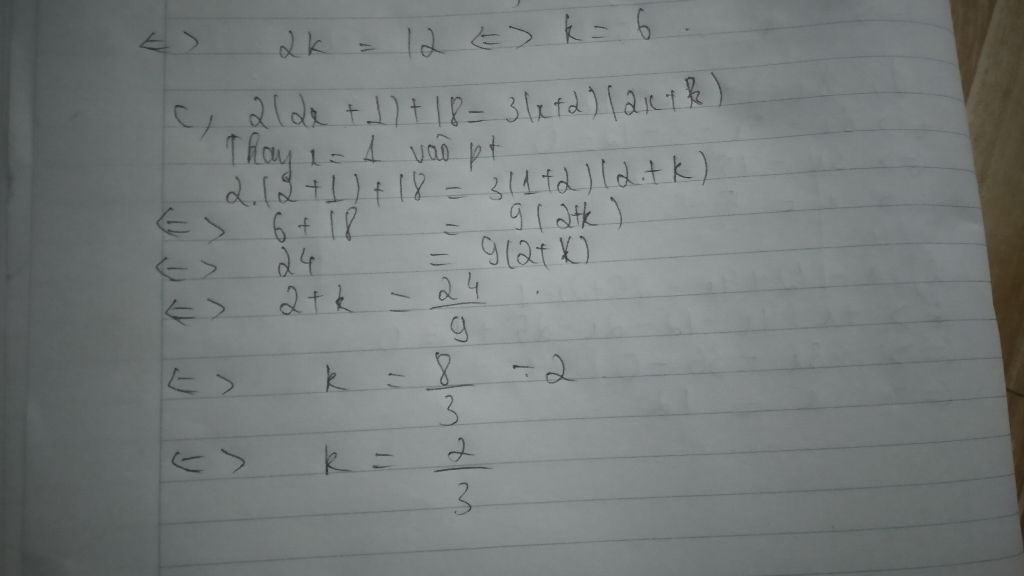 <=> 2k = 12 <=> k = 6 .
c, 2(2x + 1) + 18 = 3(x+2)(2x+k)
Thay x = 1 vào pt
2.(2+1)+18 = 3(1+2)(2+k)
<=> 6+18 = 9(2+k)
<=> 24 = 9(2+k)
<=> 2+k = 24/9 .
<=> k = 8/3 - 2
<=> k = 2/3